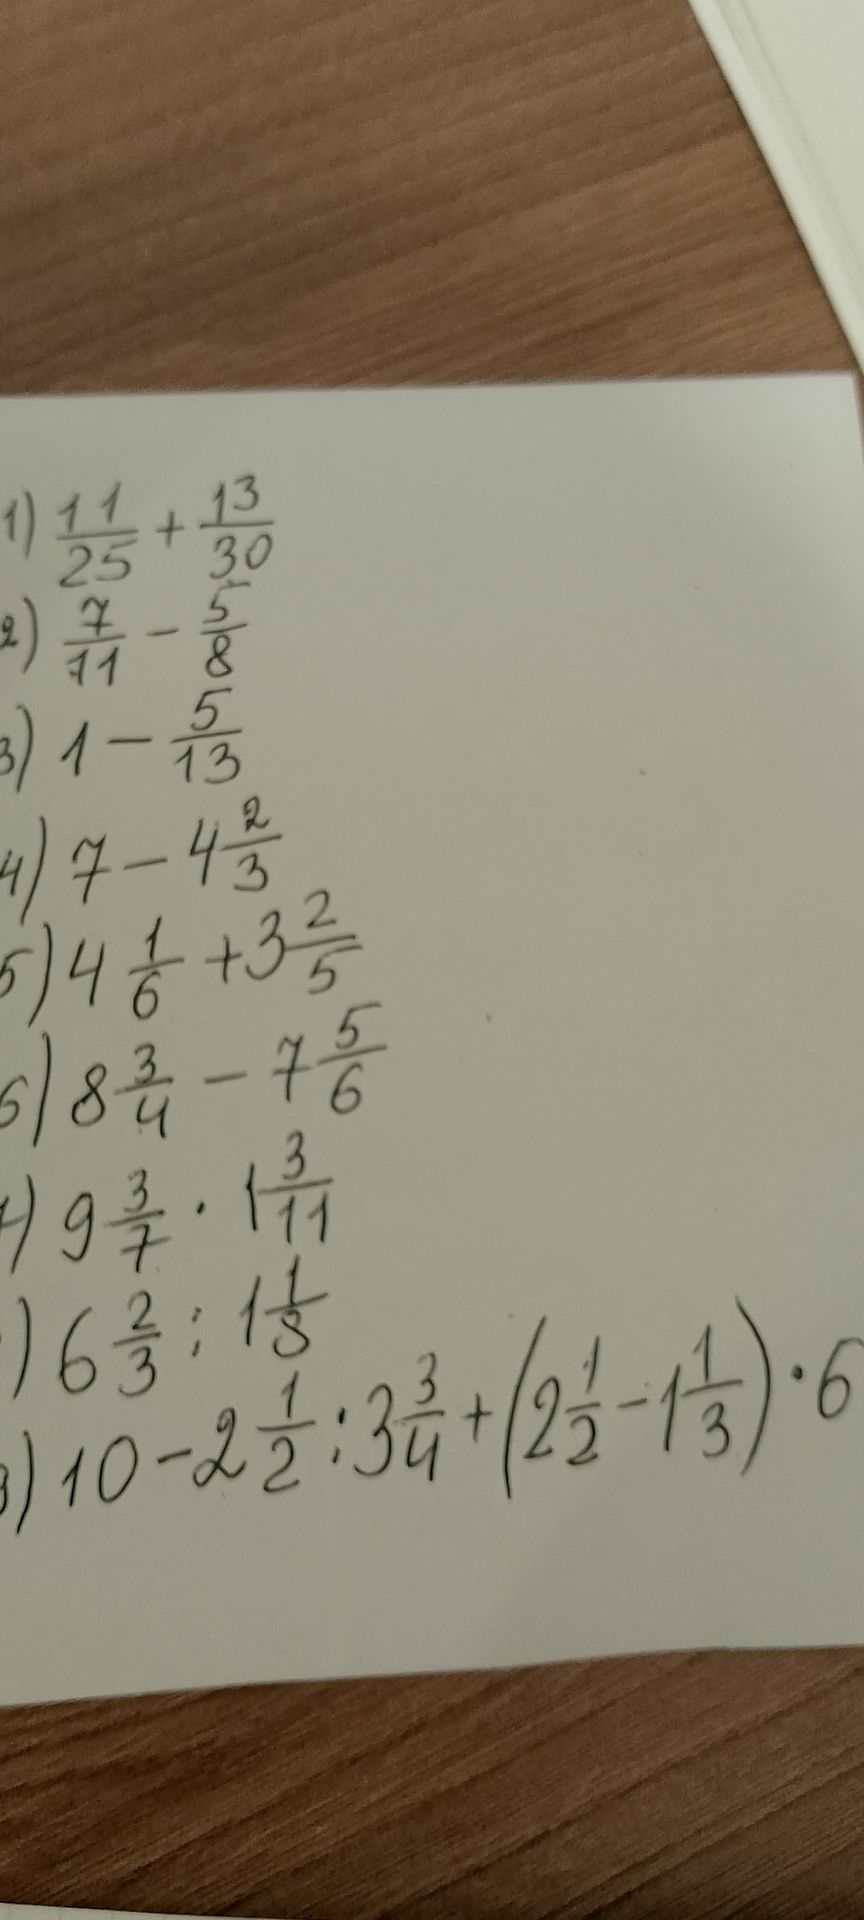 1) 11/25 + 13/30
2) 7/11 - 5/8
3) 1 - 5/13
4) 7 - 4 2/3
5) 4 1/6 + 3 2/5
6) 8 3/4 - 7 5/6
) 9 3/7 · 1 3/11
) 6 2/3 : 1 1/
) 10 - 2 1/2 : 3 3/4 + (2 1/2 - 1 1/3) · 6